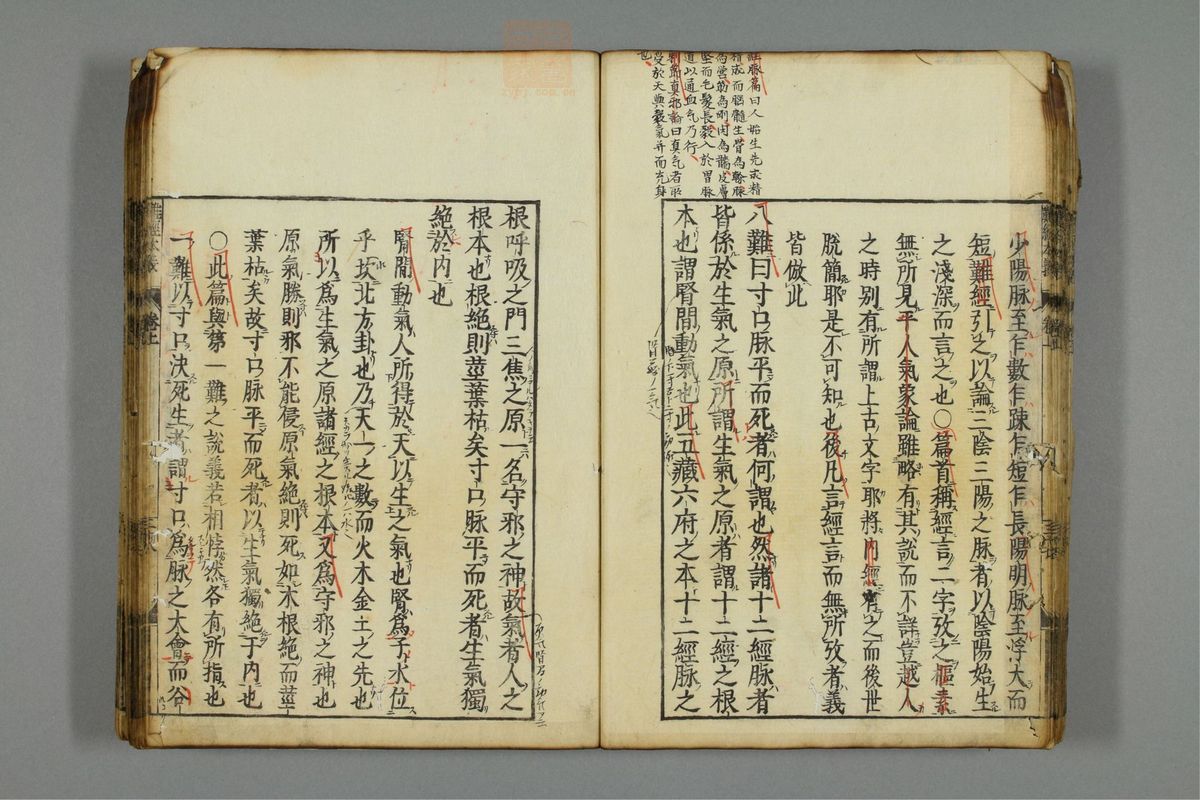 經脉篇曰人始生先成精
精成而腦髓生骨為幹脉
為營筋為剛肉為牆皮膚
堅而毛髮長穀入於胃脉
道以通血氣乃行
刺節真邪論曰真氣者所
受於天與穀氣并而充身
也
少陽脉至乍數乍踈乍短乍長陽明脉至浮大而
短難經引之以論三陰三陽之脉者以陰陽始生
之淺深而言之也○篇首稱經言二字攷之樞素
無所見平人氣象論雖略有其說而不詳豈越人
之時別有所謂上古文字耶將內經有之而後世
脫簡耶是不可知也後凡言經言而無所攷者義
皆倣此
八難曰寸口脉平而死者何謂也然諸十二經脉者
皆係於生氣之原所謂生氣之原者謂十二經之根
本也謂腎間動氣也此五藏六府之本十二經脉之
根呼吸之門三焦之原一名守邪之神故氣者人之
根本也根絶則莖葉枯矣寸口脉平而死者生氣獨
絶於內也
腎間動氣人所得於天以生之氣也腎為子水位
乎坎北方卦也乃天一之數而火木金土之先也
所以為生氣之原諸經之根本又為守邪之神也
原氣勝則邪不能侵原氣絶則死如木根絶而莖
葉枯矣故寸口脉平而死者以生氣獨絶于內也
○此篇與第一難之說義若相悖然各有所指也
一難以寸口決死生者謂寸口為脉之大會而谷
難經本義
卷上
zyfj.com.cn